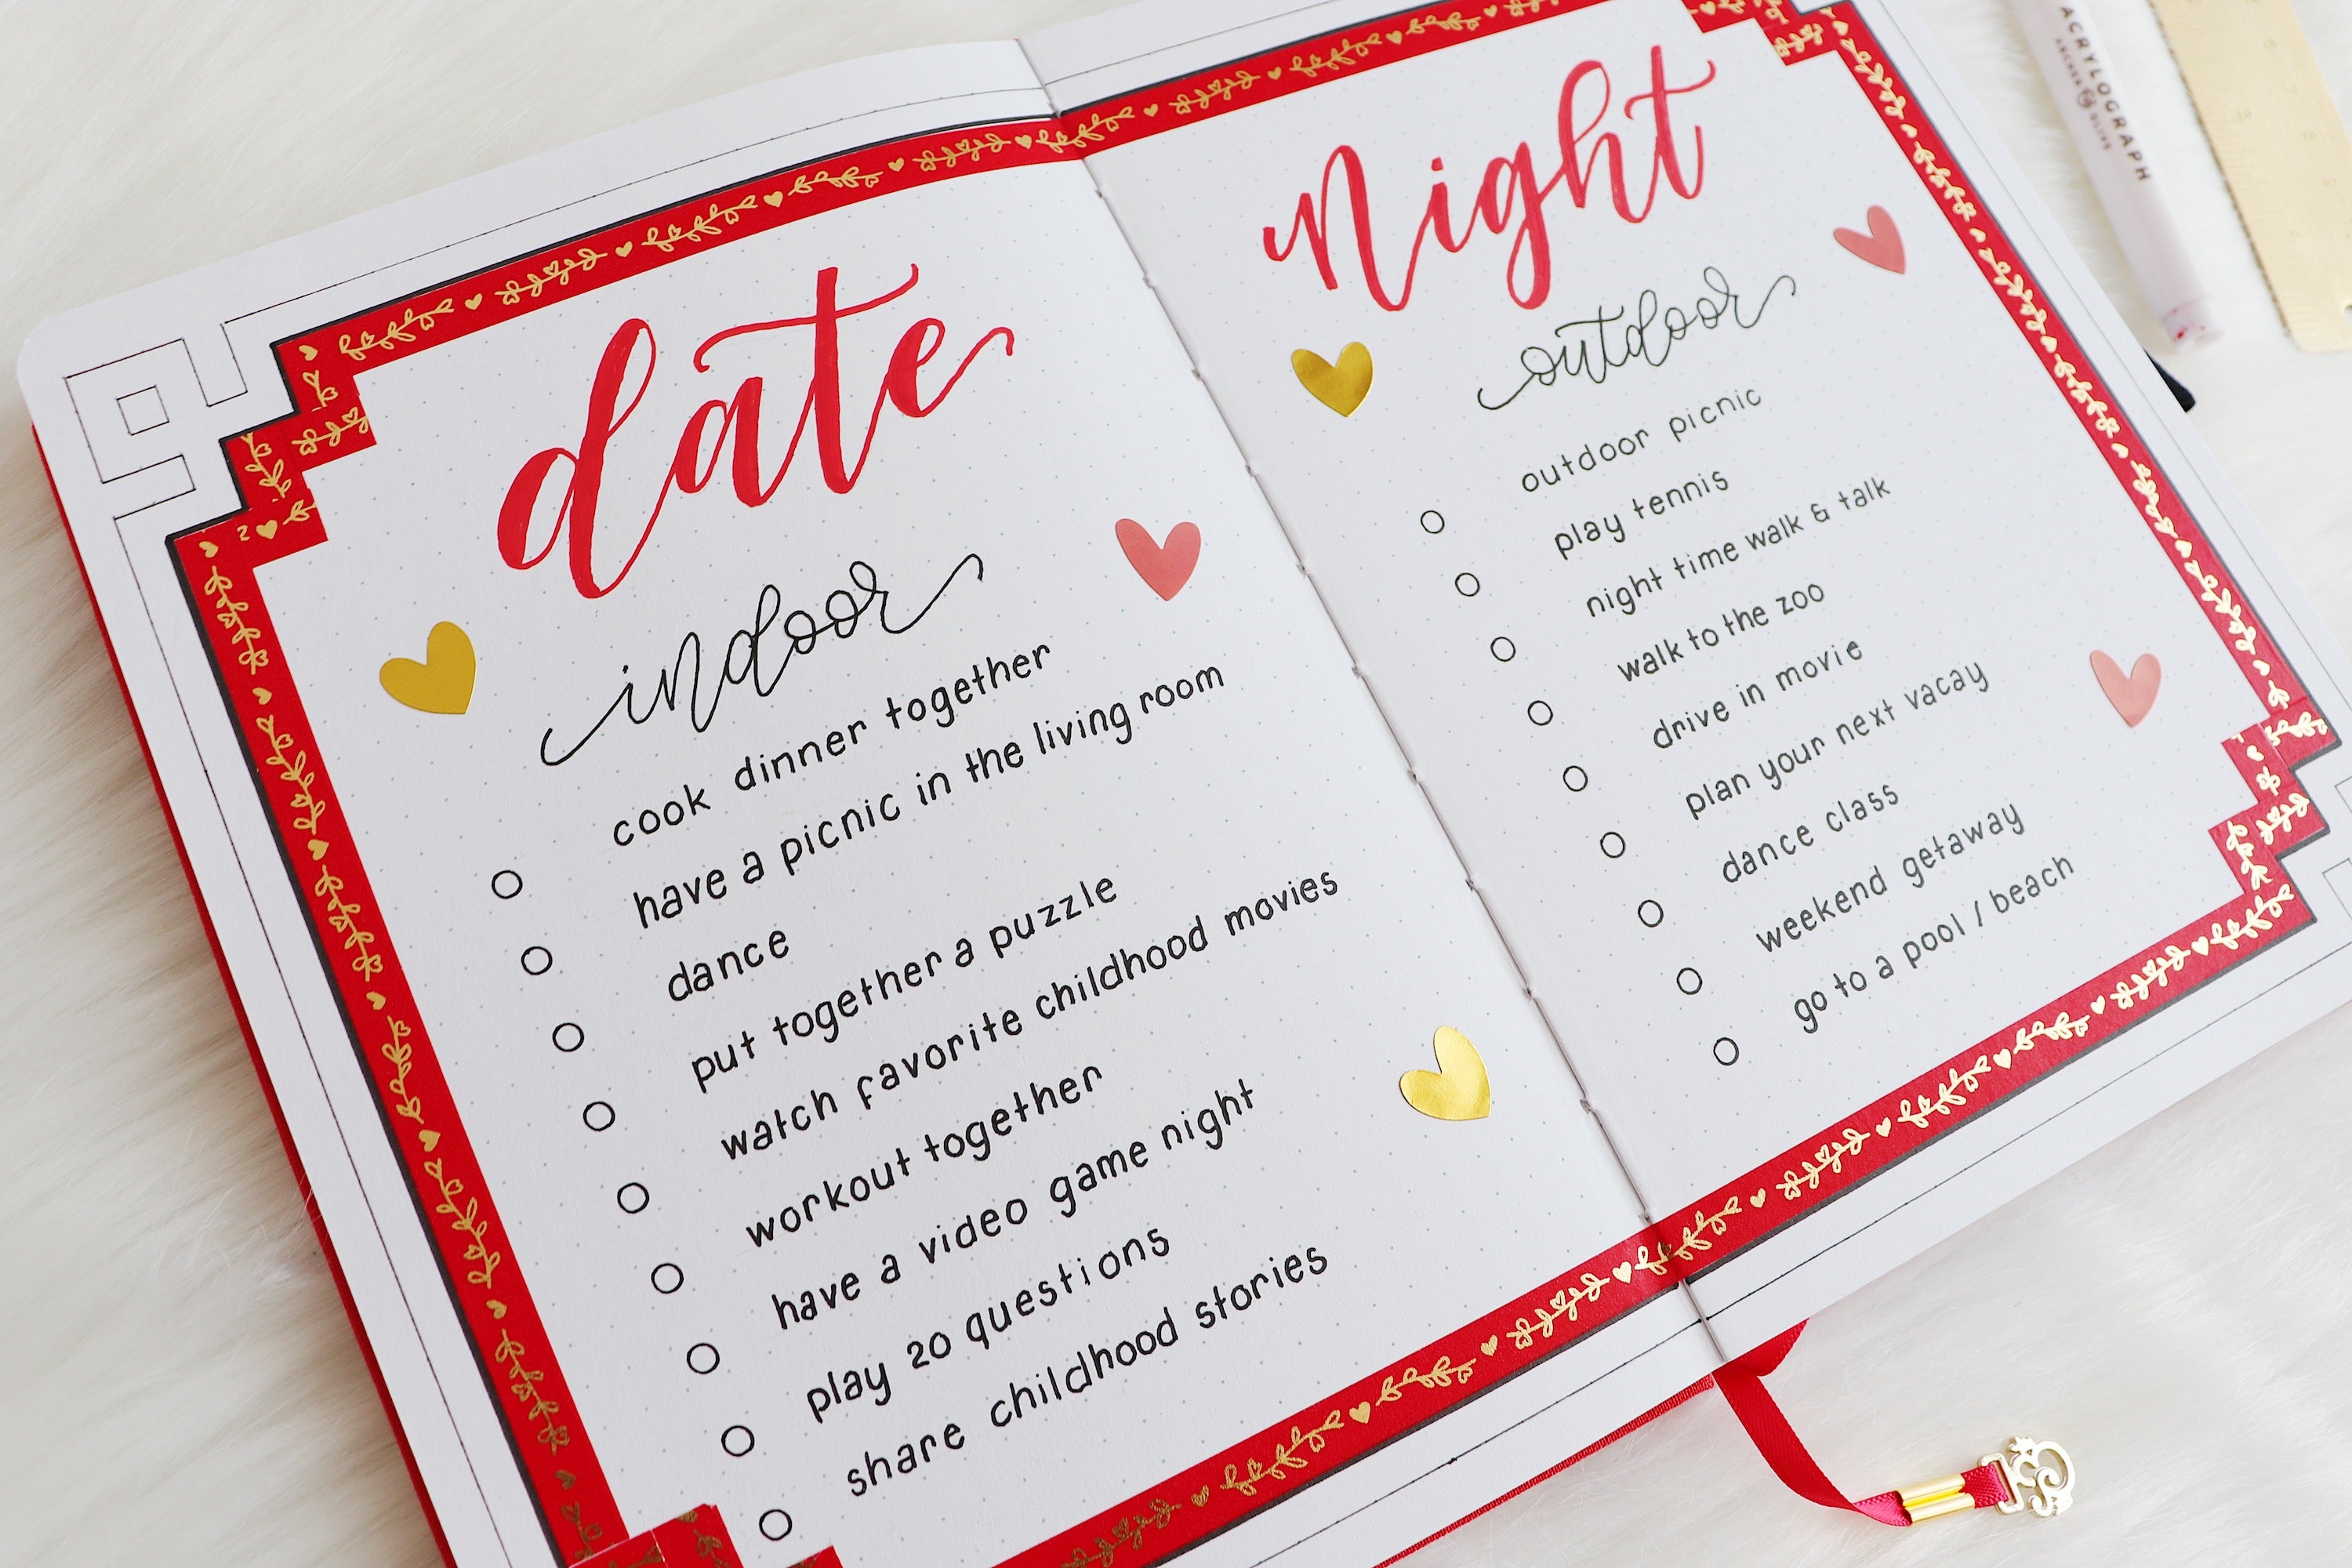 date
indoor
cook dinner together
have a picnic in the living room
dance
put together a puzzle
watch favorite childhood movies
workout together
have a video game night
play 20 questions
share childhood stories
Night
outdoor
outdoor picnic
play tennis
night time walk & talk
walk to the zoo
drive in movie
plan your next vacay
dance class
weekend getaway
go to a pool / beach
ACRYLOGRAPH
ARCHER & OLIVE